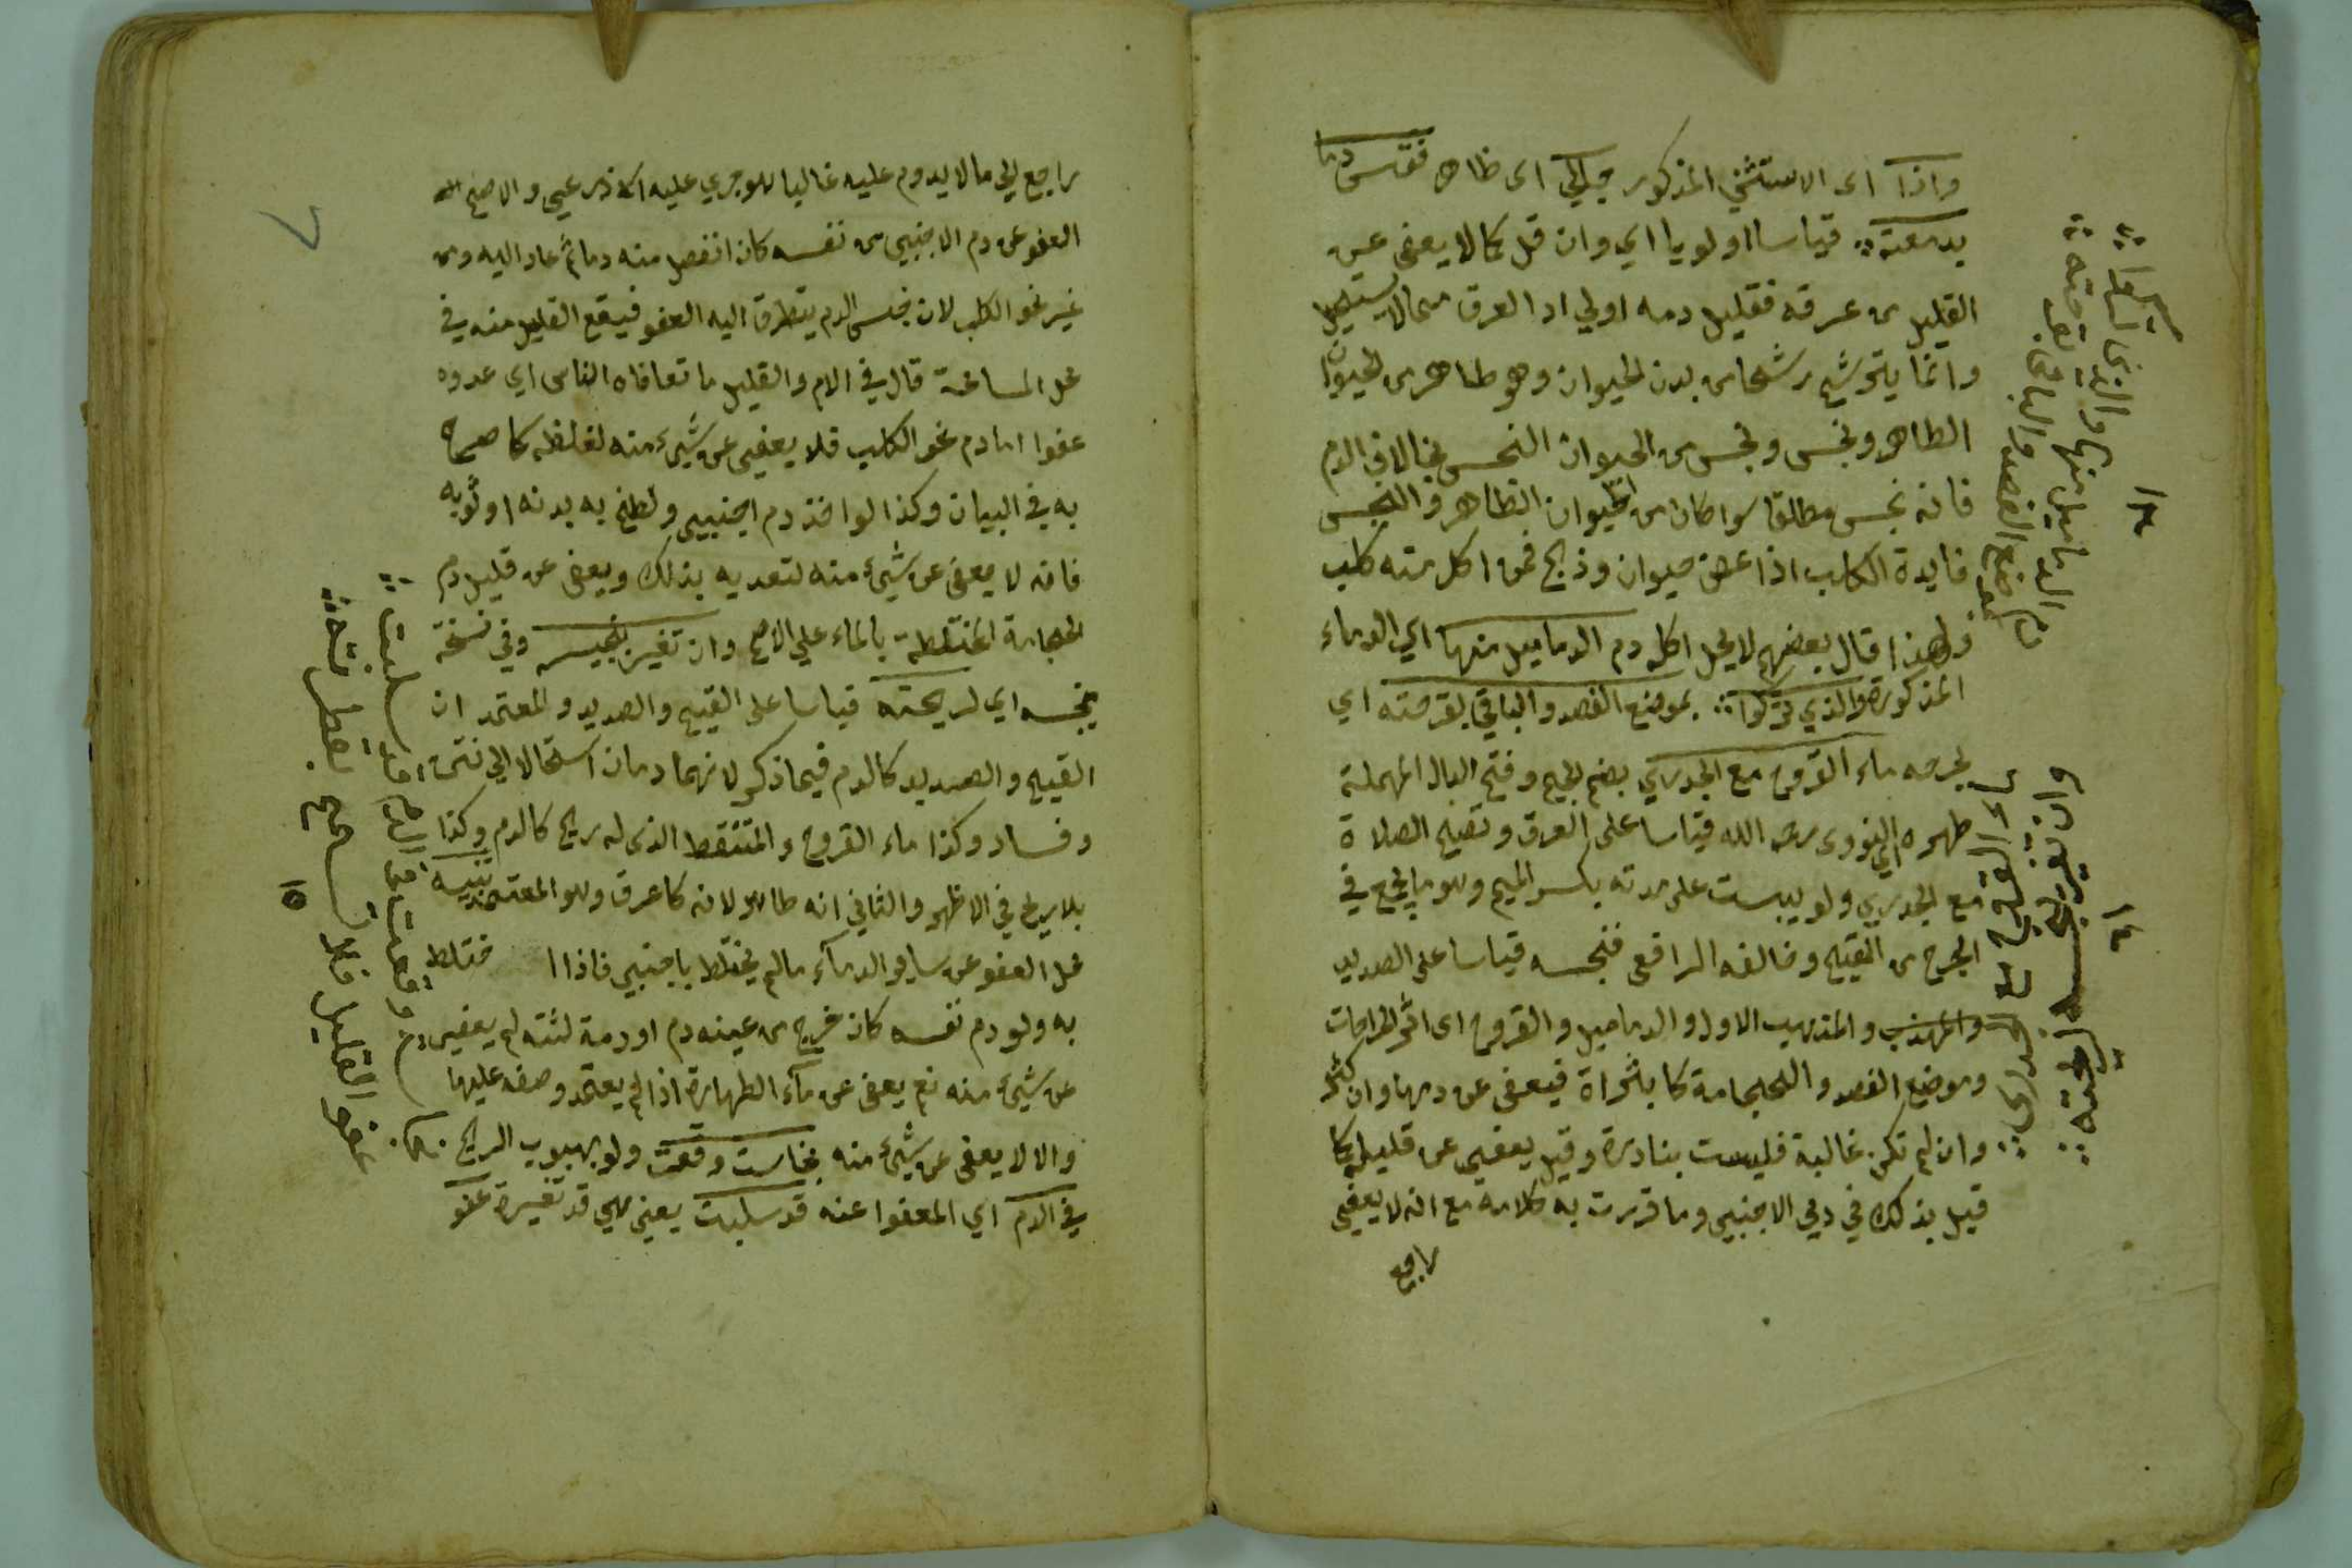 واذا اى الاستثنى المذكور جلي اى ظاهر فقس دما
بدمعته قياسا اولويا اي وان قل كما لا يعفى عن
القليل من عرقه فقليل دمه اولي اذ العرق مما لا يستحيل
وانما يترشح رشحا من بدن الحيوان وهو طاهر من الحيوان
الطاهر ونجس ونجس من الحيوان النجس بخالاف الدم
فانه نجس مطلقا سوا كان من الحيوان الطاهر والنجس
فايدة الكلب اذا عض حيوان وذبح فمن اكل منه كلب
ولهذا قال بعضهم لا يحل اكله دم الدماميل منها اي الدماء
المذكورة والذي تركوا بموضع الفصد والباقي بقرحته اي
بجرحه ماء القروح مع الجدري بضم الجيم وفتح الدال المهملة
طهره اي النووى رحمه الله قياسا على العرق وتصح الصلاة
مع الجدري ولو يبست على مدته بكسر الميم وهو ما يجمع في
الجرح من القيح وخالفه الرافعى فنجسه قياسا على الصديد
والمهذب والمذهب الاول والدماميل والقروح اى اثر الجراحات
وموضع الفصد والحجامة كالبثرات فيعفى عن دمها وان كثر
وان لم تكن غالبة فليست بنادرة وقيل يعفى عن قليله كما
قيل بذلك في دم الاجنبي وما قررت به كلامه مع انه لا يعفى
راجع
تركوا
الدماميل منها والذي
موضع الفصد والباقي بقرحته
١٣
ماء القروح مع الجدرى
وان تغير بنجسه لريحته
١٤
راجع الي ما لا يدوم عليه غالبا هو جري عليه الاذرعي والاصح
العفو عن دم الاجنبي من نفسه كان انفصل منه دما ثم عاد اليه ومن
غير نحو الكلب لان جنس الدم يتطرق اليه العفو فيقع القليل منه في
محل المسامحة قال في الام والقليل ما تعافاه الناس اي عدوه
عفوا اما دم نحو الكلب فلا يعفى عن شيء منه لغلظه كما صرح
به في البيان وكذا لو اخذ دم اجنبي ولطخ به بدنه او ثوبه
فانه لا يعفى عن شيء منه لتعديه بذلك ويعفى عن قليل دم
الحجامة المختلطة بالماء علي الاصح وان تغير بنجسه وفي نسخة
بنجسه اي لريحته قياسا على القيح والصديد والمعتمد ان
القيح والصديد كالدم فيما ذكر لانهما دمان استحالا الي نتن
وفساد وكذا ماء القروح والمتنفط الذى له ريح كالدم وكذا
بلا ريح في الاظهر والثاني انه طاهر لانه كالعرق وهو المعتمد تنبيه
محل العفو عن ساير الدماء مالم يختلط باجنبي فاذا اختلط
به ولو دم نفسه كان خرج من عينه دم او دمة لثته لم يعفى
عن شيء منه نعم يعفى عن ماء الطهارة اذا لم يعتمد وصفه عليها
والا لا يعفى عن شيء منه نجاست وقعت ولو بهبوب الريح
في الدم اي المعفوا عنه قد سلبت يعني هي قد تغيرة عفو
نجاست وقعت في الدم قد سلبت
عفو القليل فلا تسامح بقطرته
١٥
٧